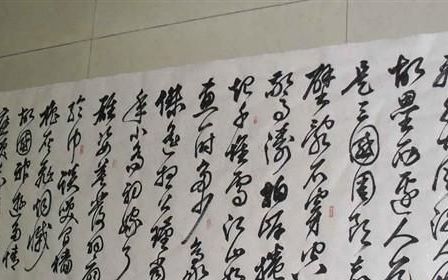 故垒西边人
是三国周郎赤
壁乱石穿空
惊涛拍岸卷
起千堆雪江山如
画一时多少豪
杰遥想公瑾当
年小乔初嫁了
雄姿英发羽扇
纶巾谈笑间樯
橹灰飞烟灭
故国神游多情